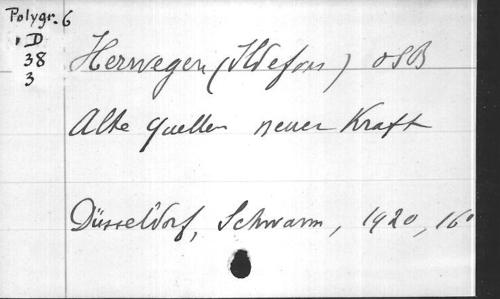 Polygr. 6
D
38
3
Herwegen (Ildefons) OSB
Alte Quellen neuer Kraft
Düsseldorf, Schwann, 1920, 16°